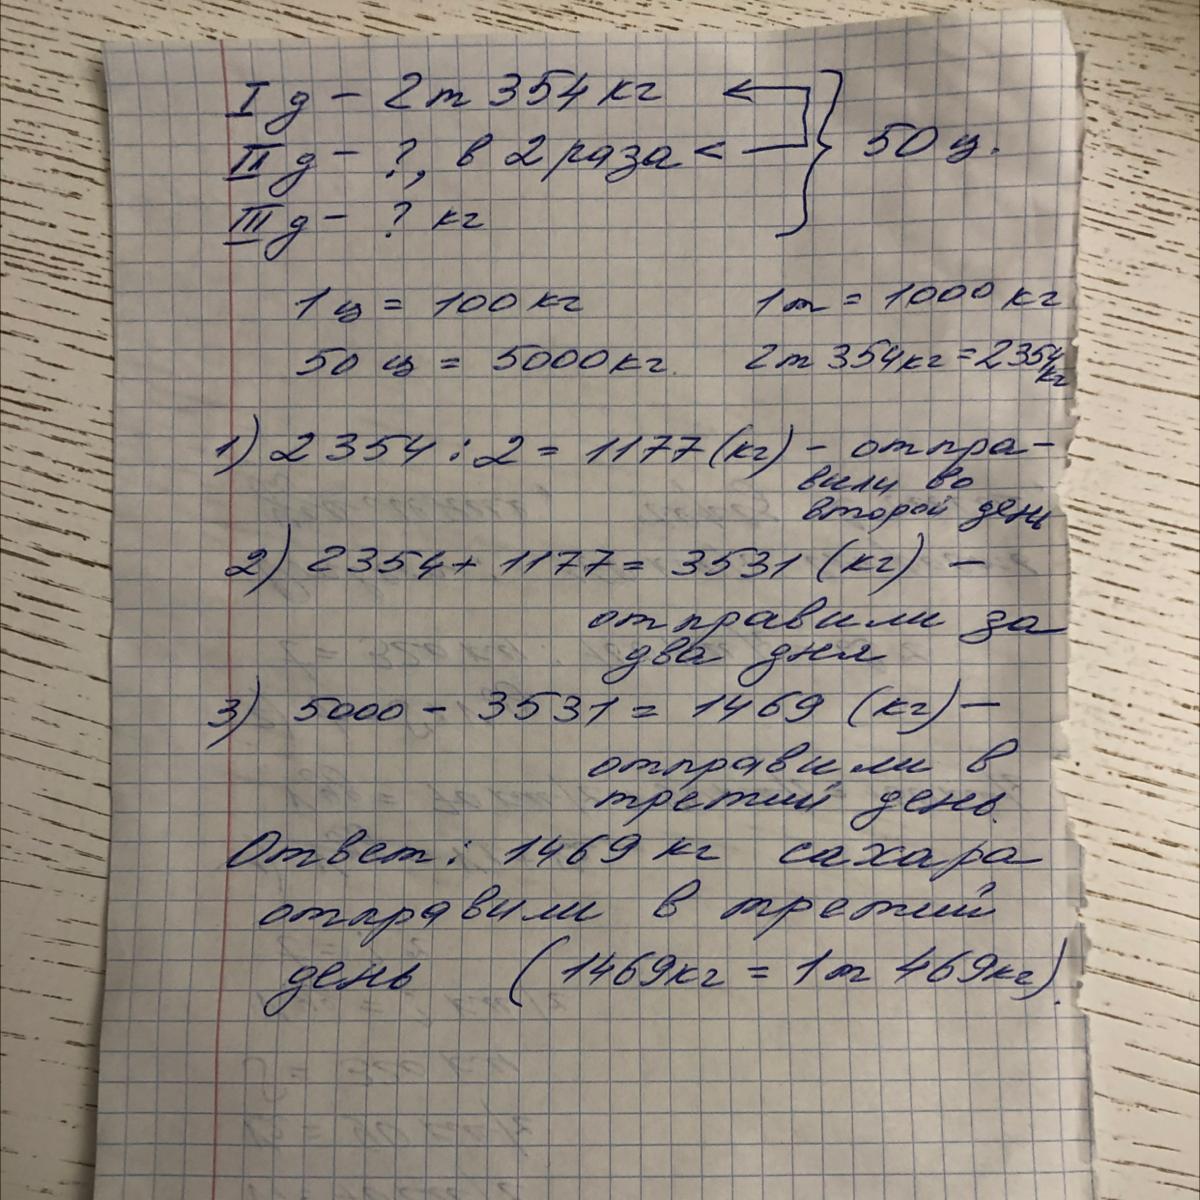 I д – 2 т 354 кг
II д – ?, в 2 раза <
III д – ? кг
} 50 ц.
1 ц = 100 кг
1 т = 1000 кг
50 ц = 5000 кг.
2 т 354 кг = 2354 кг
1) 2354 : 2 = 1177 (кг) – отпра-
вили во
второй день
2) 2354 + 1177 = 3531 (кг) –
отправили за
два дня
3) 5000 – 3531 = 1469 (кг) –
отправили в
третий день.
Ответ: 1469 кг сахара
отправили в третий
день (1469 кг = 1 т 469 кг).